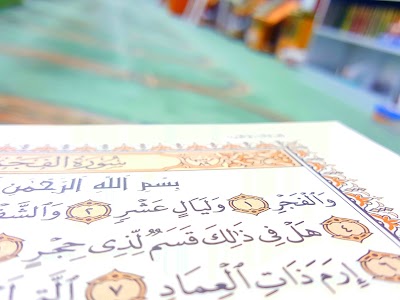 سُورَةُ الفَجْرِ
بِسْمِ اللَّهِ الرَّحْمَٰنِ
وَٱلْفَجْرِ ١ وَلَيَالٍ عَشْرٍ ٢ وَٱلشَّفْ
٤ هَلْ فِى ذَٰلِكَ قَسَمٌ لِّذِى حِجْرٍ
٦ إِرَمَ ذَاتِ ٱلْعِمَادِ ٧ ٱلَّتِى